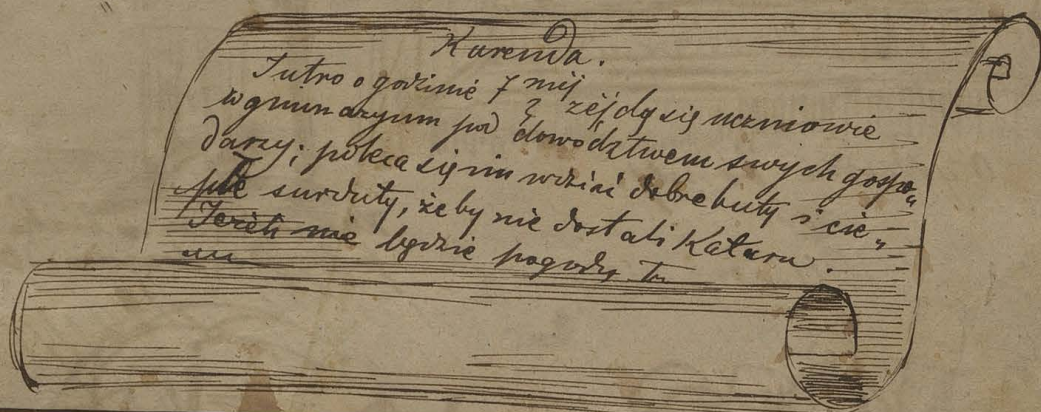 Kurenda.
Jutro o godzinie 7 mej zéjdą się uczniowie
w gimnazyum pod dowództwem swych gospo„
darzy; poleca się im wziąć dobre buty i cie„
płe surduty, żeby nie dostali Kataru.
Jeżeli nie będzie pogody to